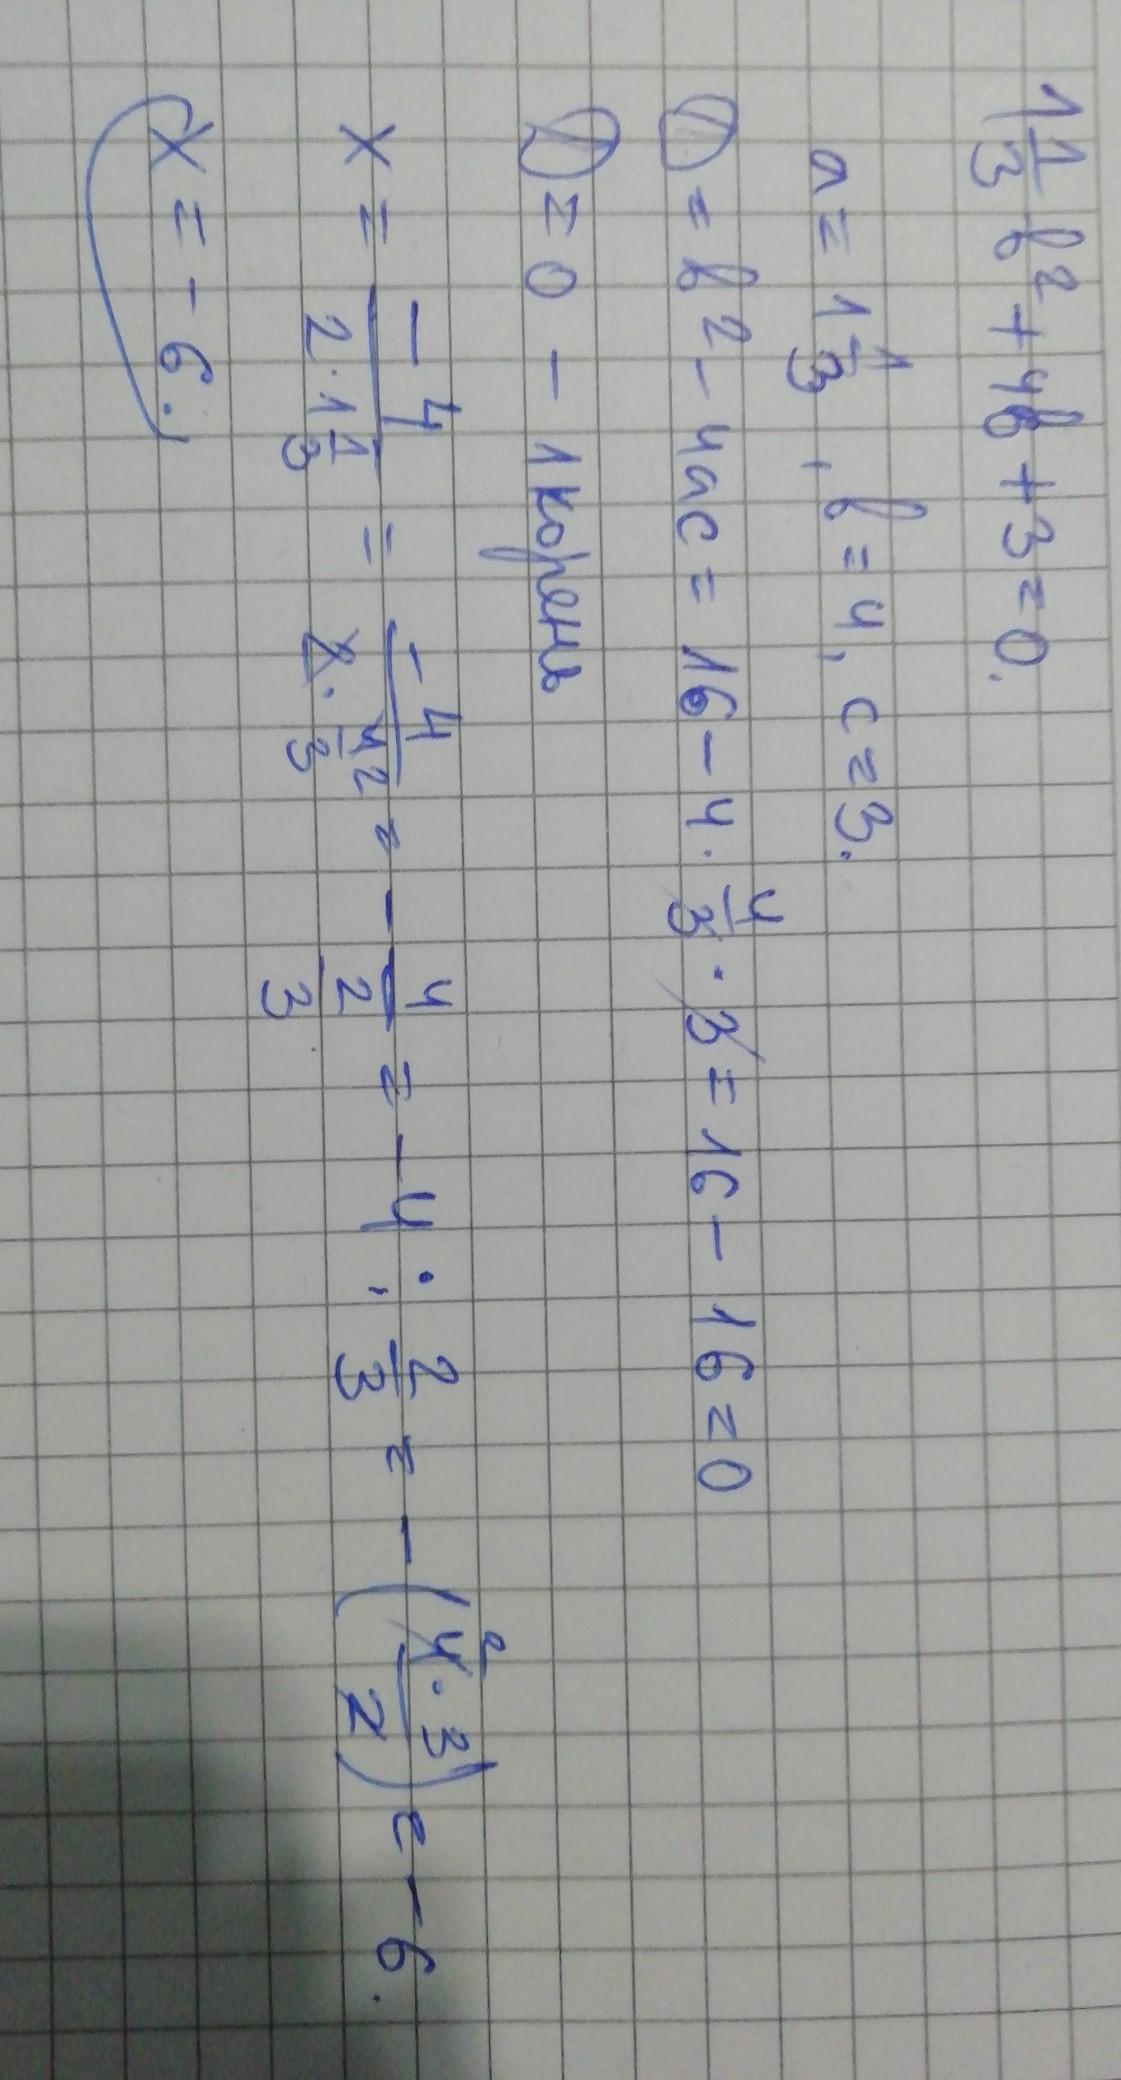 1 1/3 b² + 4b + 3 = 0.
a = 1 1/3, b = 4, c = 3.
D = b² - 4ac = 16 - 4 · 4/3 · 3 = 16 - 16 = 0
D = 0 - 1 корень
x = -4/(2 · 1 1/3) = -4/(2 · 4/3) 2 = - 4/(2/3) = -4 : 2/3 = - (4 · 3/2) 2 = -6.
x = -6.